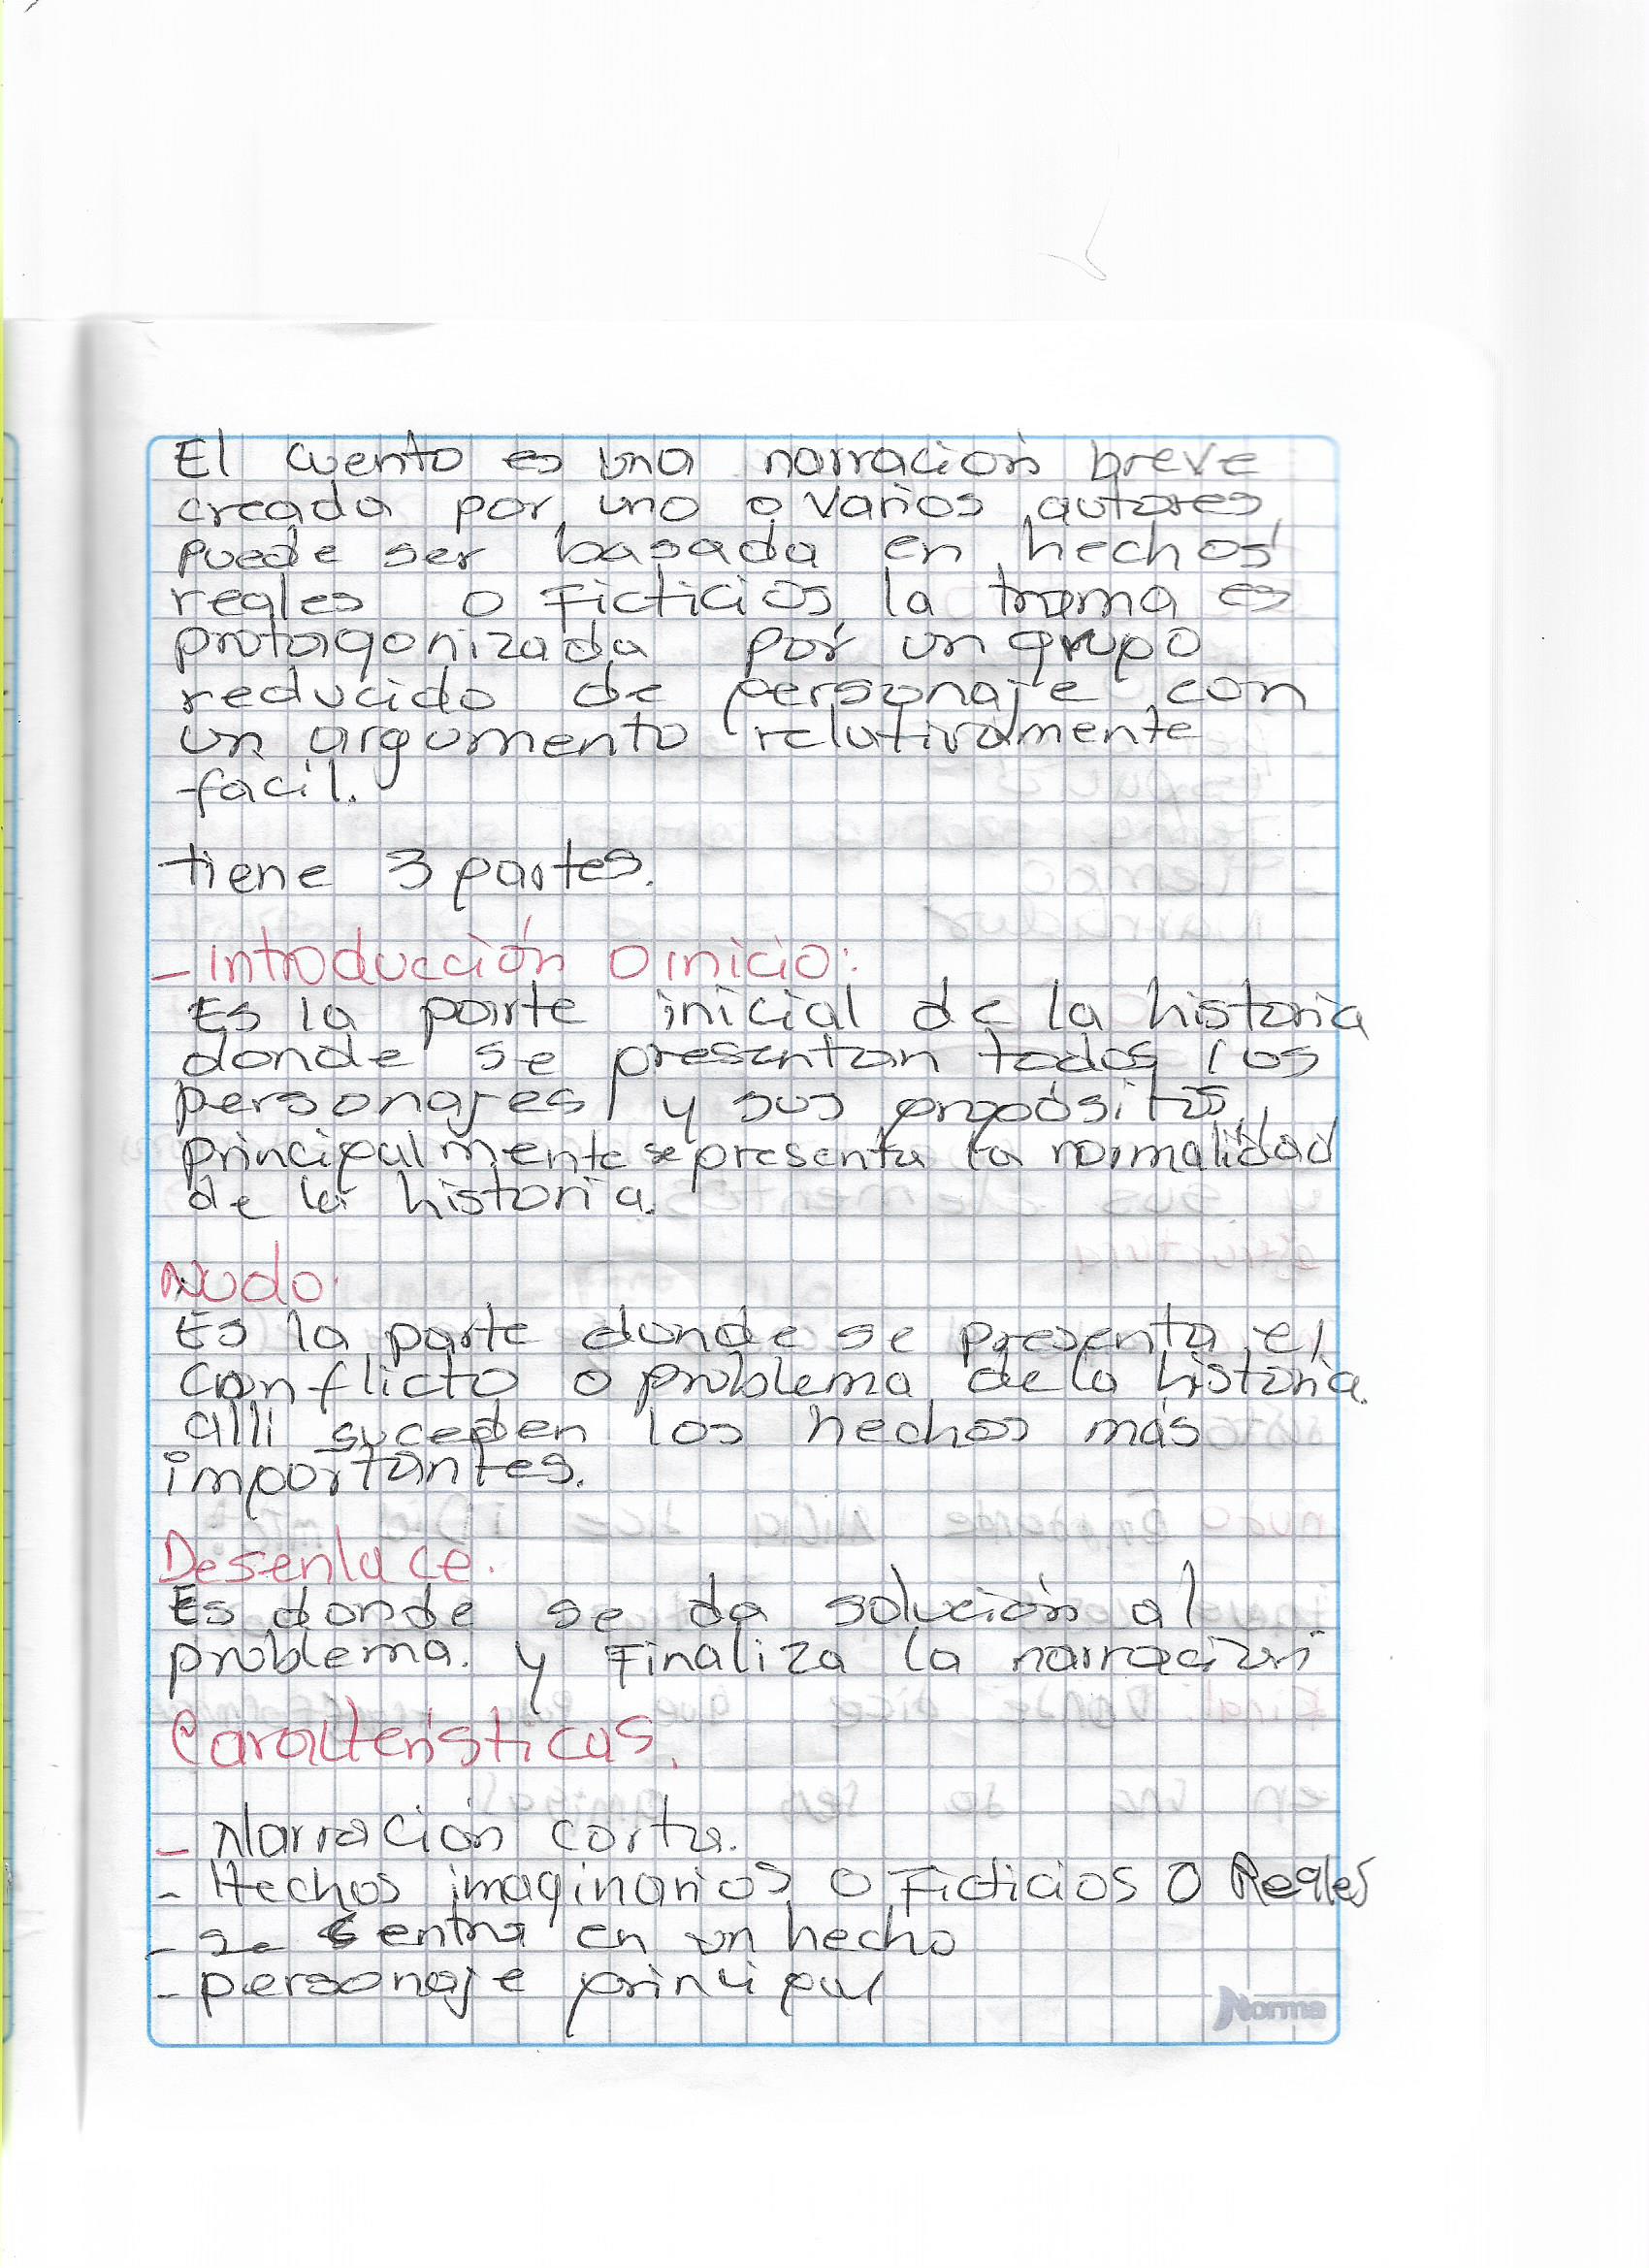 El cuento es una narración breve
creada por uno o varios autores,
puede ser basada en hechos
reales o Ficticios, la trama es
protagonizada por un grupo
reducido de personaje con
un argumento relativamente
facil.
tiene 3 partes.
- Introducción o inicio:
Es la parte inicial de la historia
donde se presentan todos los
personajes y sus propósitos,
principalmente se presenta la normalidad
de la historia.
Nudo:
Es la parte donde se presenta el
conflicto o problema de la historia.
alli suceden los hechos más
importantes.
Desenlace.
Es donde se da solución al
problema. y Finaliza la narración
Caracteristicas.
- Narración corta.
- Hechos imaginarios o Ficticios o Reales
- se sentra en un hecho
- personaje principal
Norma